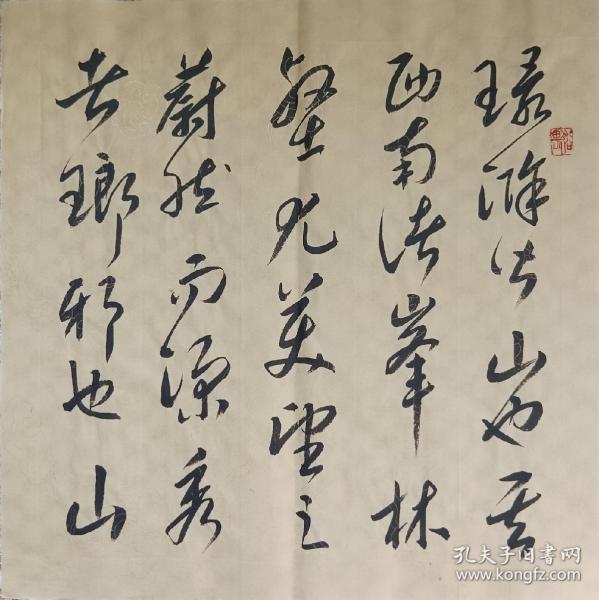 環滁皆山也其
西南諸峯林
壑尤美望之
蔚然而深秀
者瑯邪也山
孔夫子旧书网
www.kongfz.com